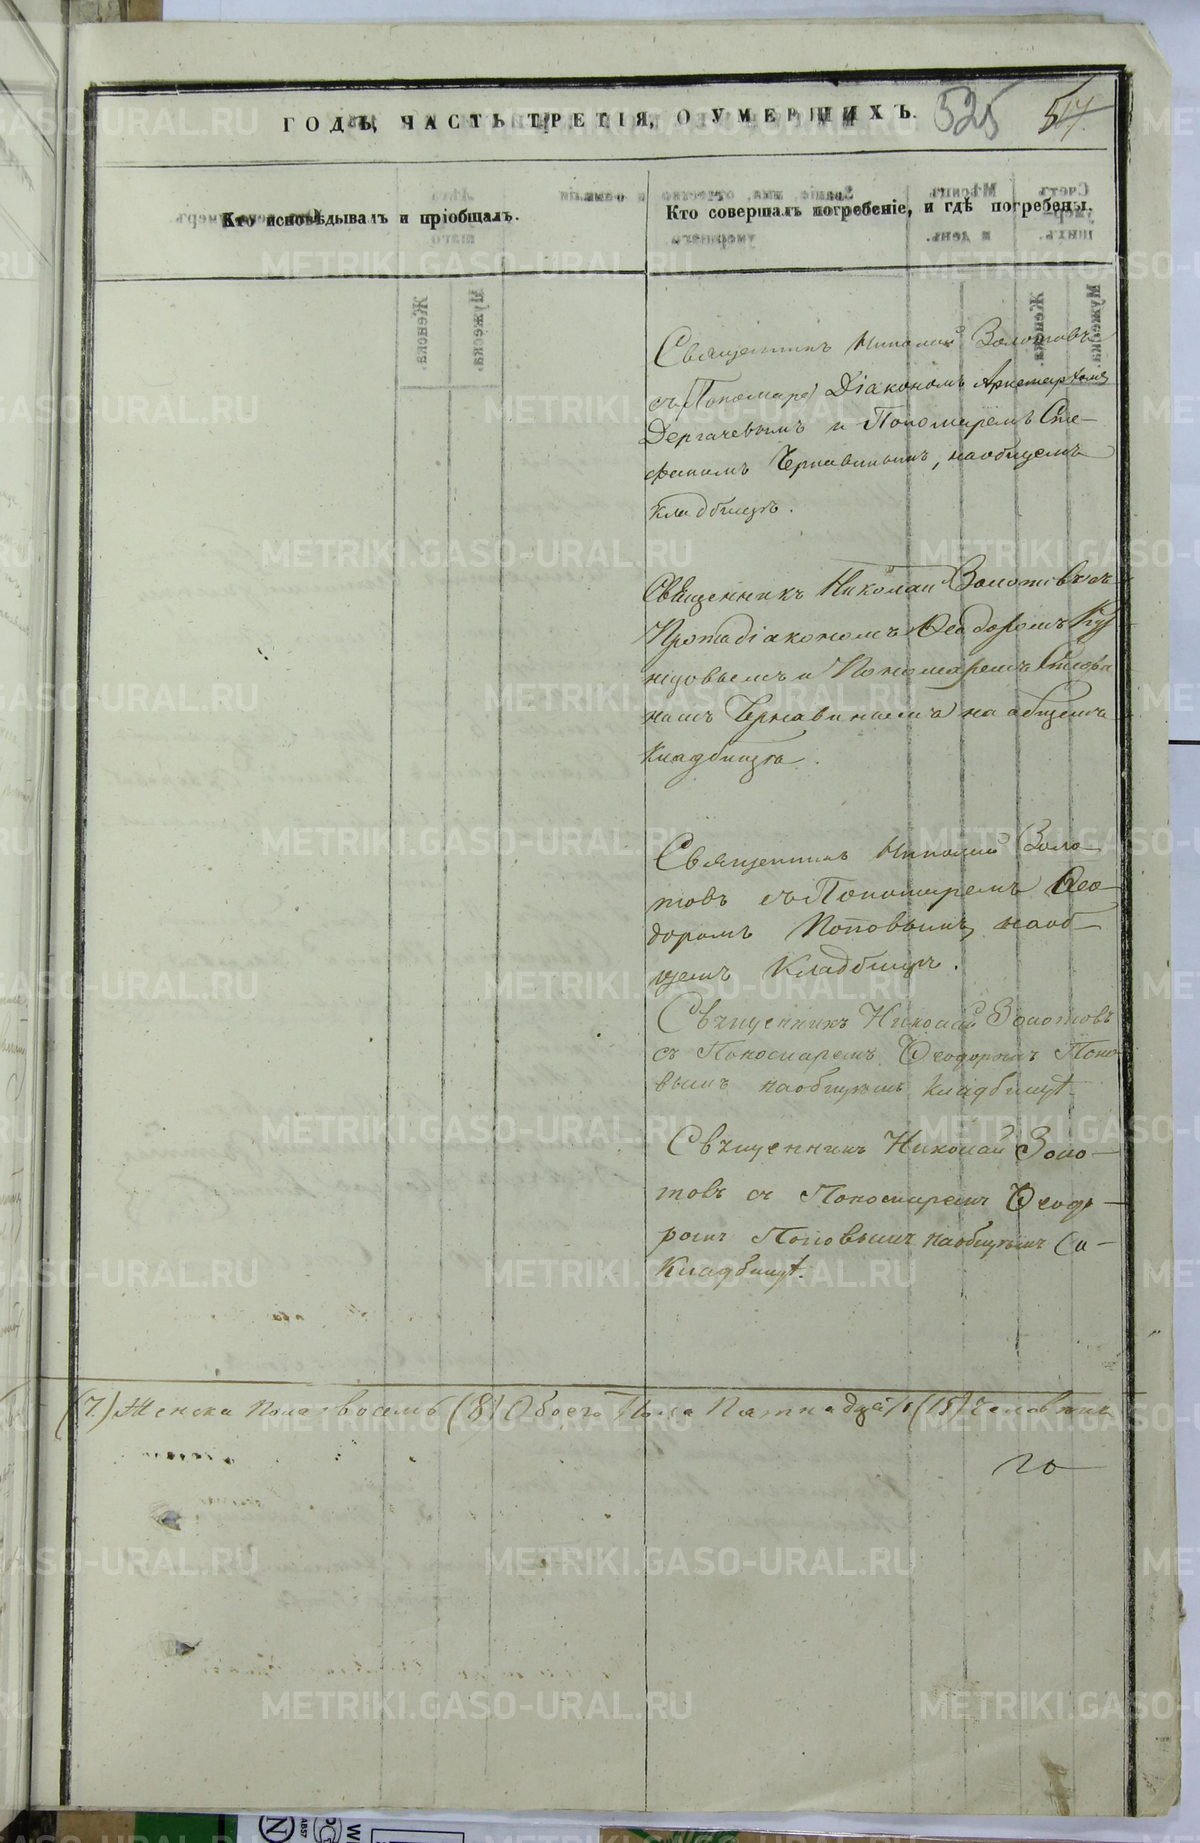 ГОДѢ, ЧАСТЬ ТРЕТІЯ, О УМЕРШИХЪ.
525 517
Кто исповѣдывалъ и пріобщалъ.
Кто совершалъ погребеніе, и гдѣ погребены.
Священникъ Николай Золотовъ
съ (Пономаре) Діакономъ Аристархомъ
Дергачевымъ и Пономаремъ Сте-
фаномъ Чернавинымъ, на общемъ
кладбищѣ.
Священникъ Николай Золотовъ съ
Протодіакономъ Ѳеодоромъ
и Пономаремъ Стефа
номъ Чернавинымъ на общемъ
Кладбищѣ.
Священникъ Николай Золо-
товъ съ Пономаремъ Ѳео-
доромъ Поповымъ, на об-
щемъ Кладбищѣ.
Свѣщенникъ Николай Золотовъ
съ Пономаремъ Ѳеодоромъ Попо
вымъ на общемъ кладбищѣ
Свѣщенникъ Николай Золо-
товъ съ Пономаремъ Ѳеодо-
ромъ Поповымъ на общемъ
Кладбищѣ.
(7) Женска пола восемь (8) Обоего Пола Пятнадцать (15) Человѣкъ
METRIKI.GASO-URAL.RU